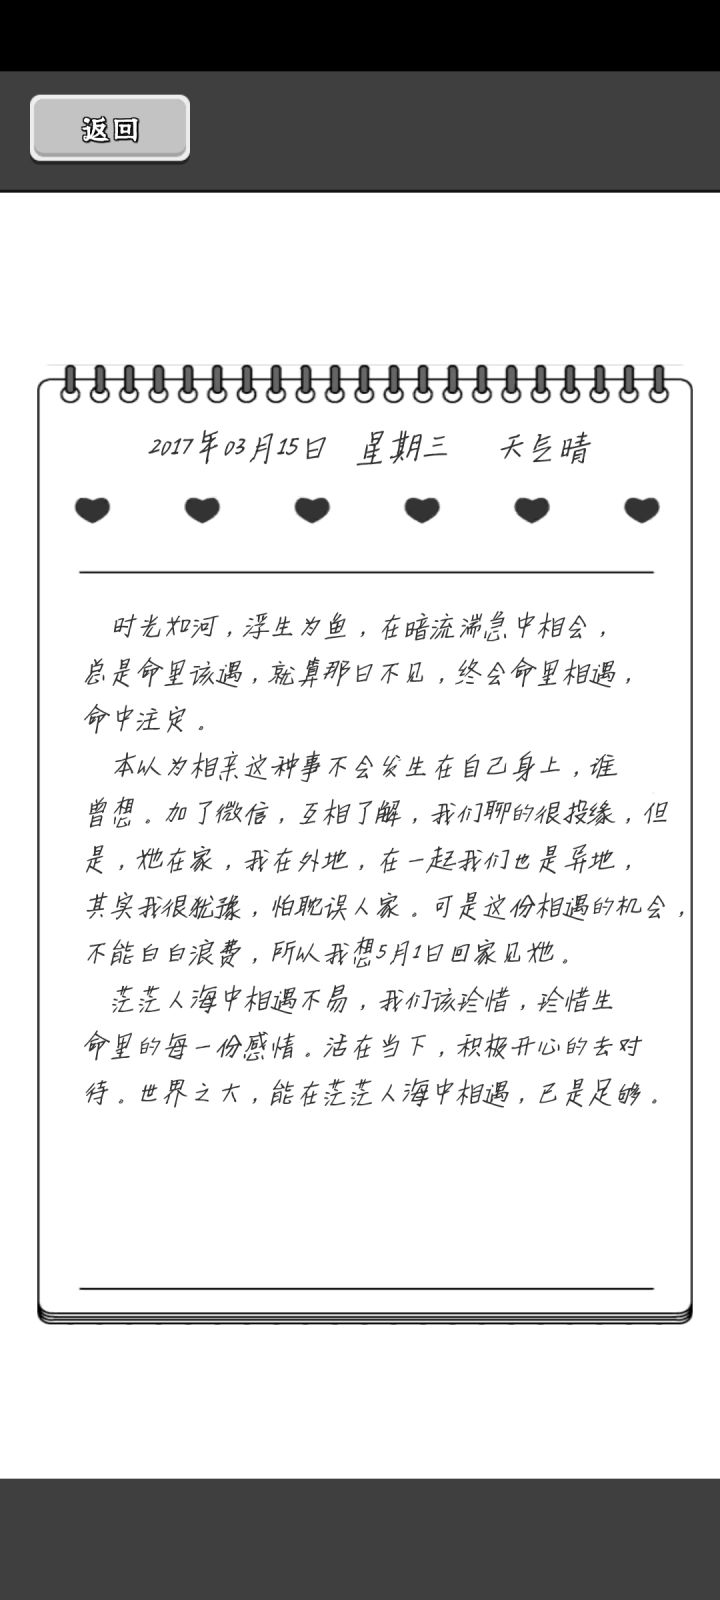 返回
2017年03月15日 星期三 天气晴
时光如河，浮生为鱼，在暗流湍急中相会，
总是命里该遇，就算那日不见，终会命里相遇，
命中注定。
本以为相亲这种事不会发生在自己身上，谁
曾想。加了微信，互相了解，我们聊的很投缘，但
是，她在家，我在外地，在一起我们也是异地，
其实我很犹豫，怕耽误人家。可是这份相遇的机会，
不能白白浪费，所以我想5月1日回家见她。
茫茫人海中相遇不易，我们该珍惜，珍惜生
命里的每一份感情。活在当下，积极开心的去对
待。世界之大，能在茫茫人海中相遇，已是足够。